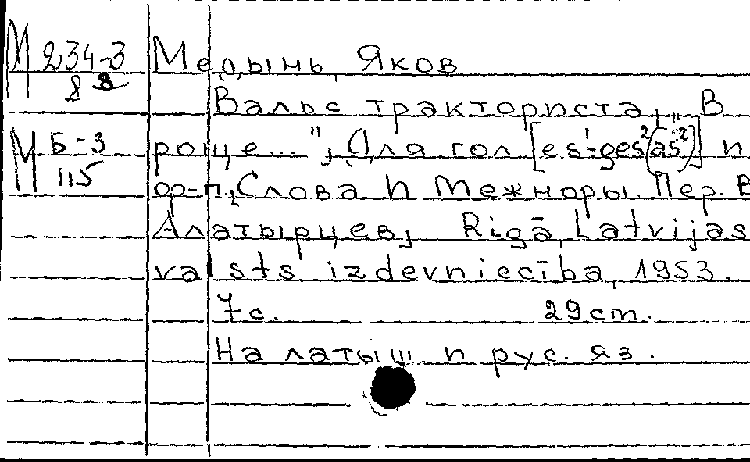 М 234-3
8
Медынь, Яков
Вальс тракториста, "В
М Б-3
115
роще...", Для гол [es¹-ges²(as²)] и
ор-п., Слова И Межноры. Пер. В
Алатырцев, Rigā, Latvijas
valsts izdevniecība, 1953.
7с. 29cm.
На латыш и рус. яз.